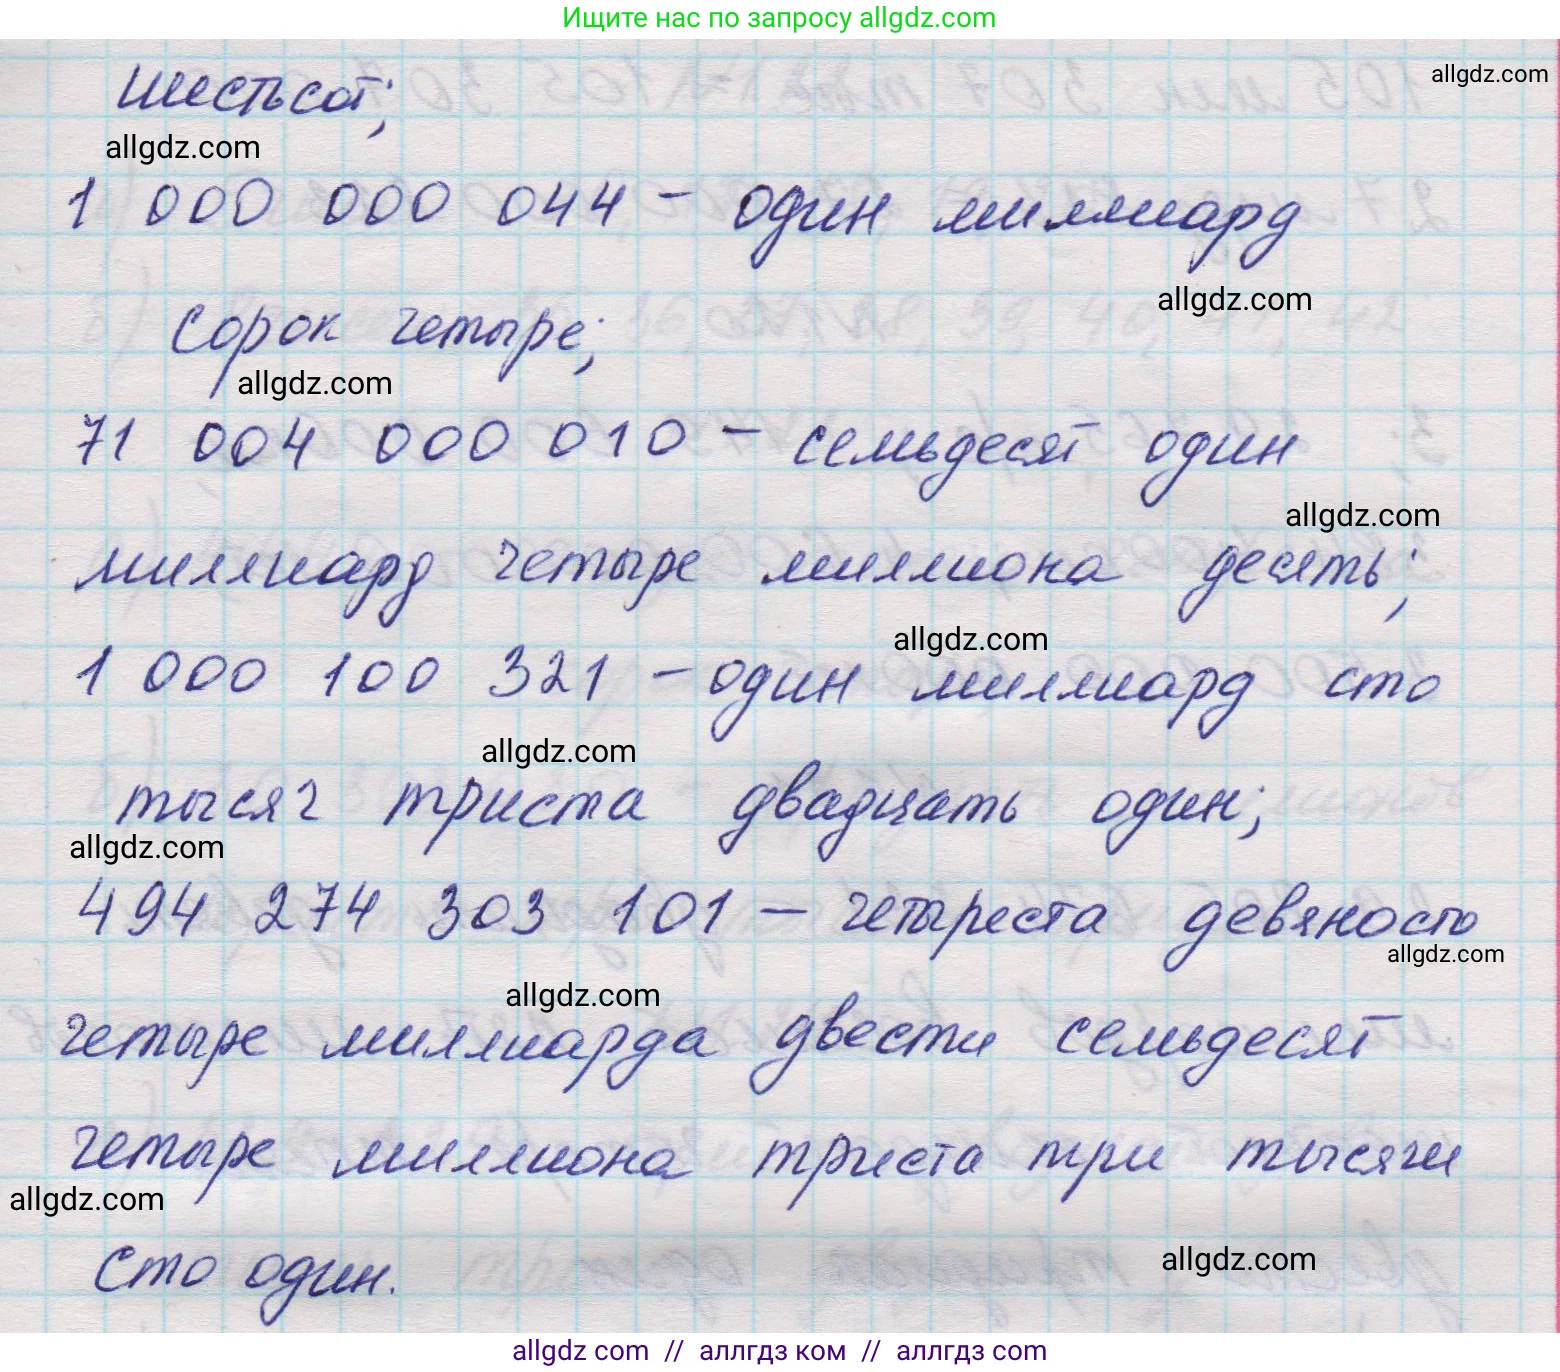 Ищите нас по запросу allgdz.com
allgdz.com
шестьсот;
allgdz.com
1 000 000 044 – один миллиард
allgdz.com
сорок четыре;
allgdz.com
71 004 000 010 – семьдесят один
allgdz.com
миллиард четыре миллиона десять;
allgdz.com
1 000 100 321 – один миллиард сто
allgdz.com
тысяч триста двадцать один;
allgdz.com
494 274 303 101 – четыреста девяносто
allgdz.com
allgdz.com
четыре миллиарда двести семьдесят
четыре миллиона триста три тысячи
allgdz.com
сто один.
allgdz.com
allgdz com // аллгдз ком // аллгдз com